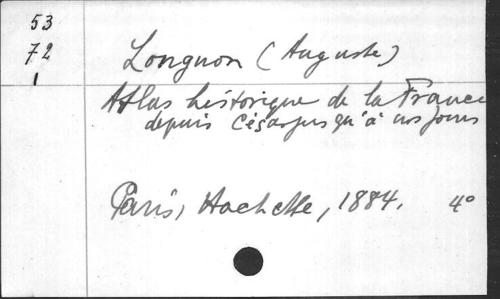 53
72
1
Longnon (Auguste)
Atlas historique de la France
depuis César jusqu'à nos jours
Paris, Hachette, 1884. 4°